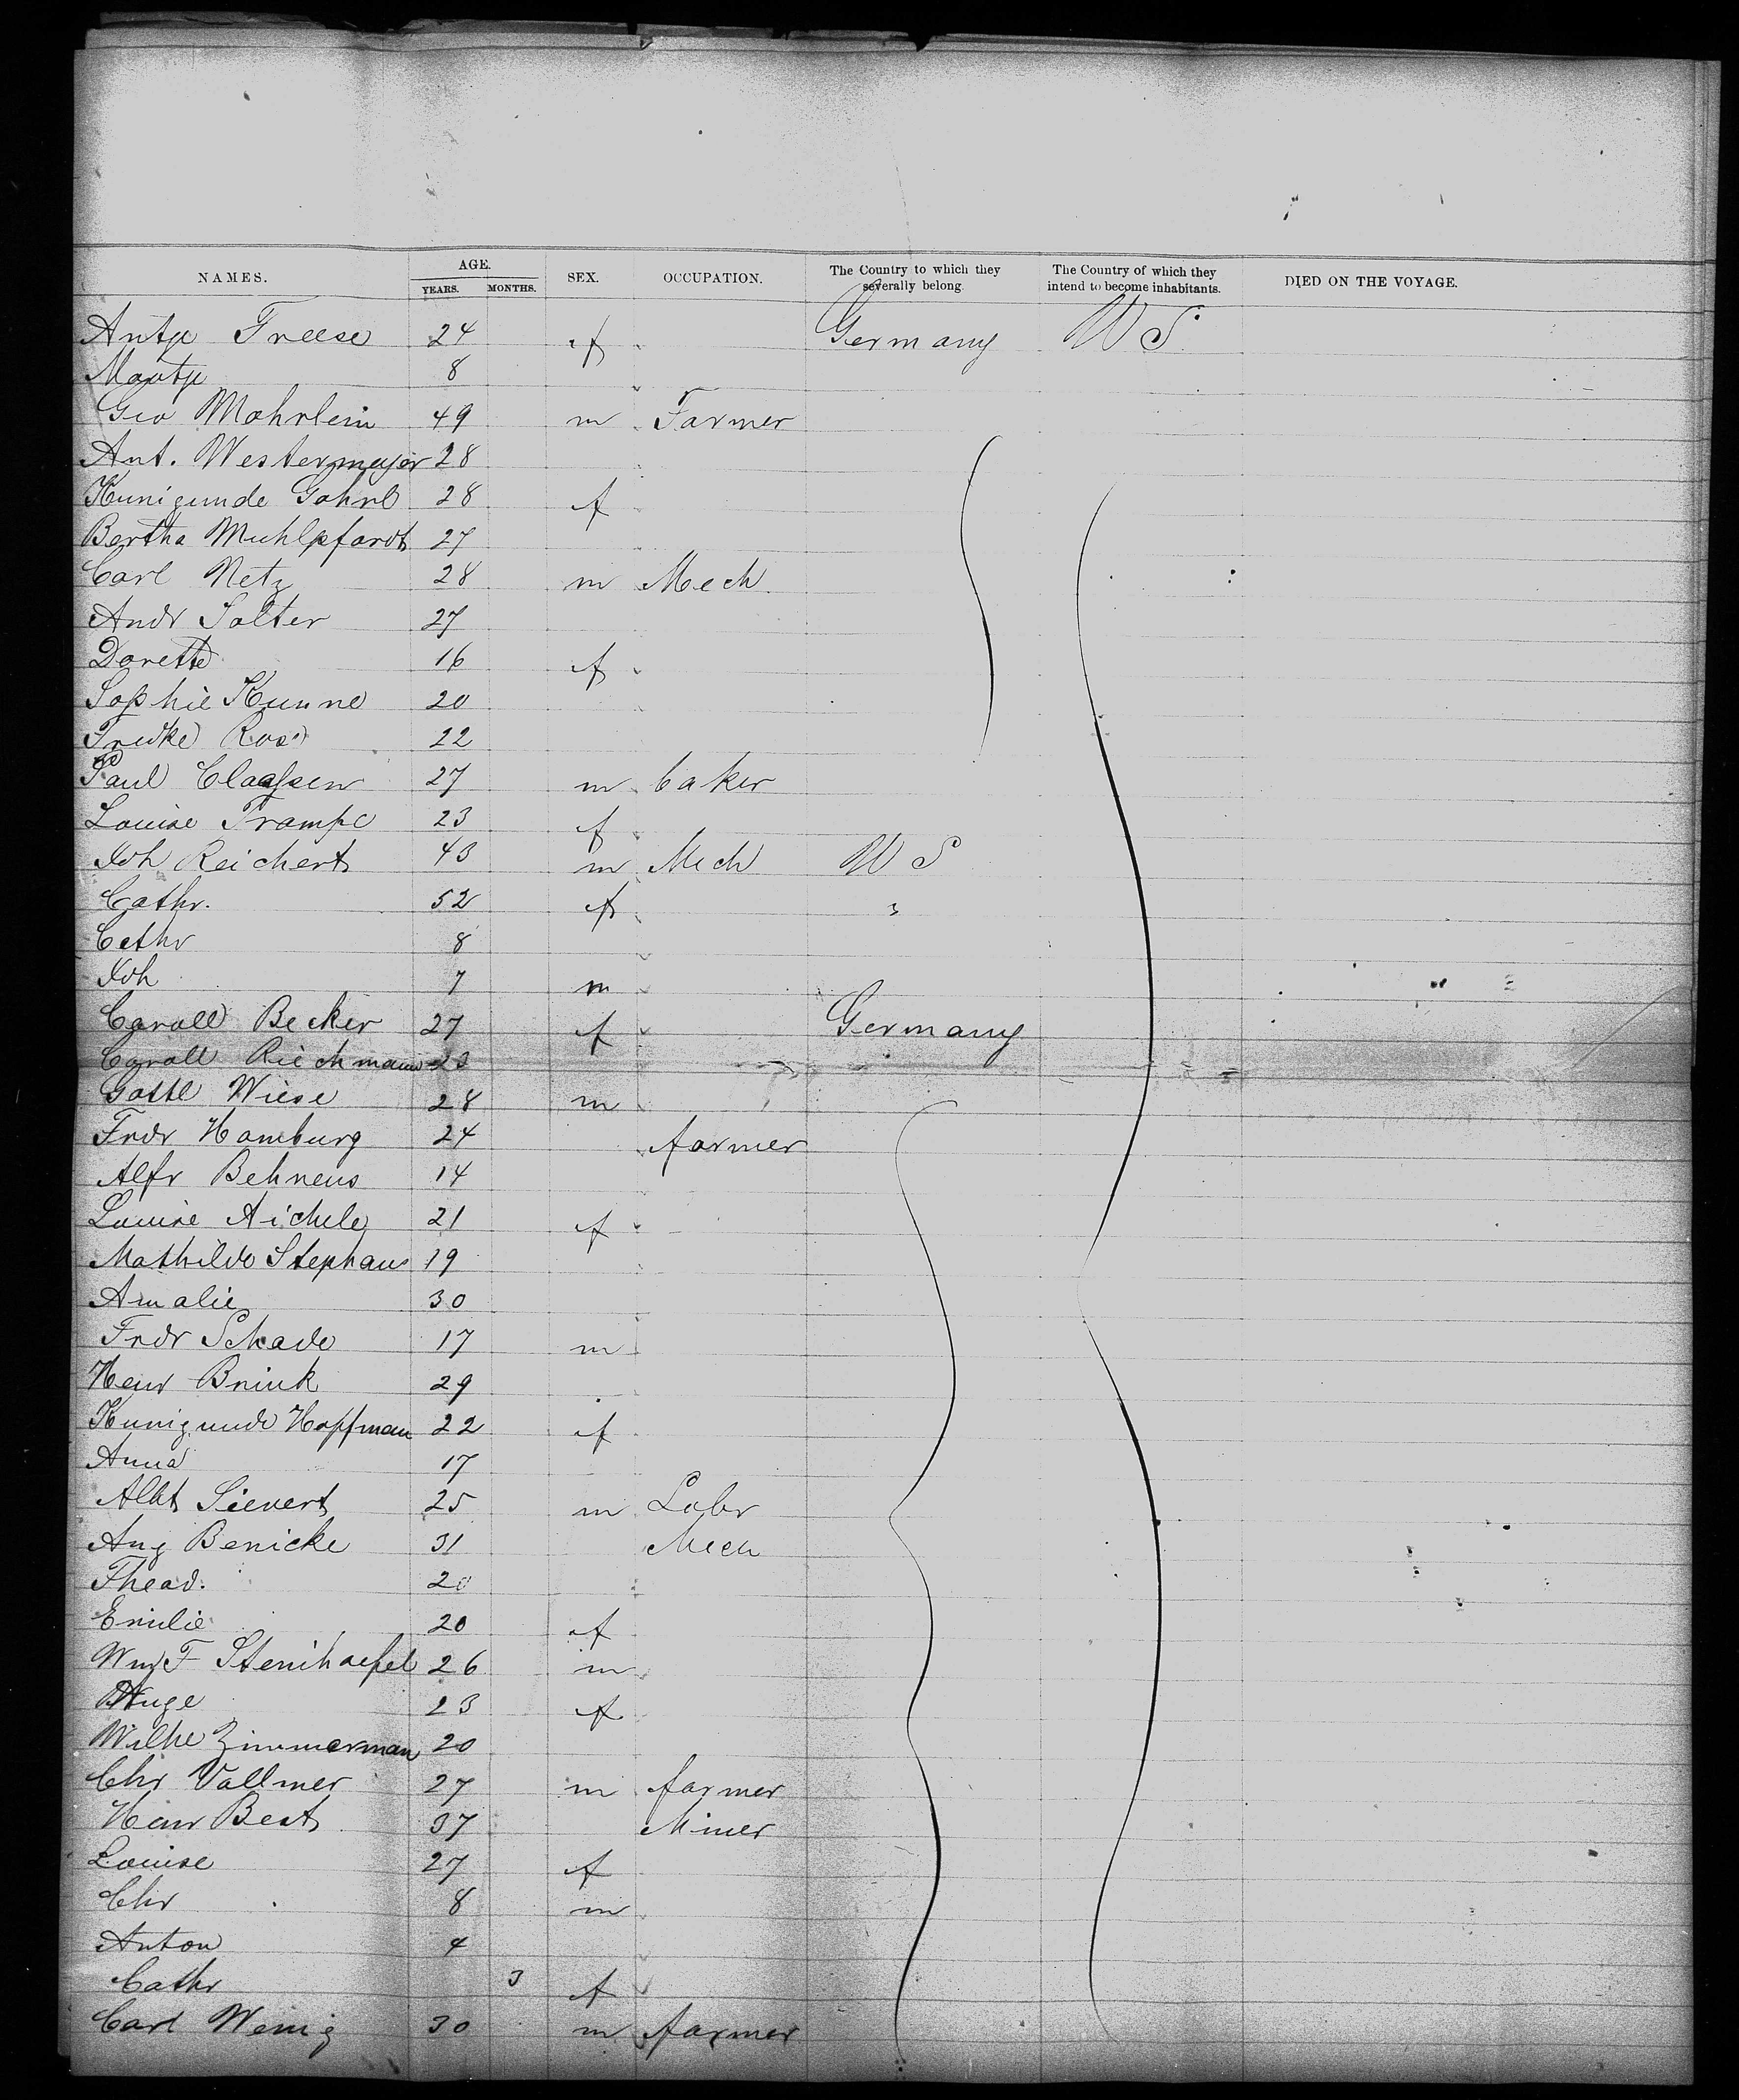 NAMES. AGE. SEX. OCCUPATION. The Country to which they severally belong. The Country of which they intend to become inhabitants. DIED ON THE VOYAGE.
YEARS. MONTHS.
Antje Freese 24 f Germany U S.
Mantje 8
Geo Mohrlein 49 m Farmer
Ant. Westermayer 28
Kunigunde Gahrl 28 f
Bertha Muhlpfardt 27
Carl Netz 28 m Mech
Andr Salter 27
Dorette 16 f
Sophie Kunne 20
Fredke Rose 22
Paul Claassen 27 m baker
Louise Trampe 23 f
Joh Reichert 43 m Mech U S
Cathr. 52 f "
Cathr 8
Joh 7 m
Caroll Becker 27 f Germany
Caroll Riechmann
Gottl Wiese 28 m
Fredr Homburg 24 farmer
Alfr Behrens 14
Louise Aichele 21 f
Mathilde Stephans 19
Amalie 30
Fredr Schade 17 m
Henr Brink 29
Kunigunde Hoffman 22 f
Anna 17
Albt Sievert 25 m Labr
Aug Benicke 31 Mech
Thead. 20
Emilie 20 f
Wm F 26 m
23 f
Wilhe Zimmerman 20
Chr Vollmer 27 m farmer
Henr Best 37 Miner
Louise 27 f
Chr 8 m
Anton 4
Cathr 3 f
Carl Wenig 30 m farmer